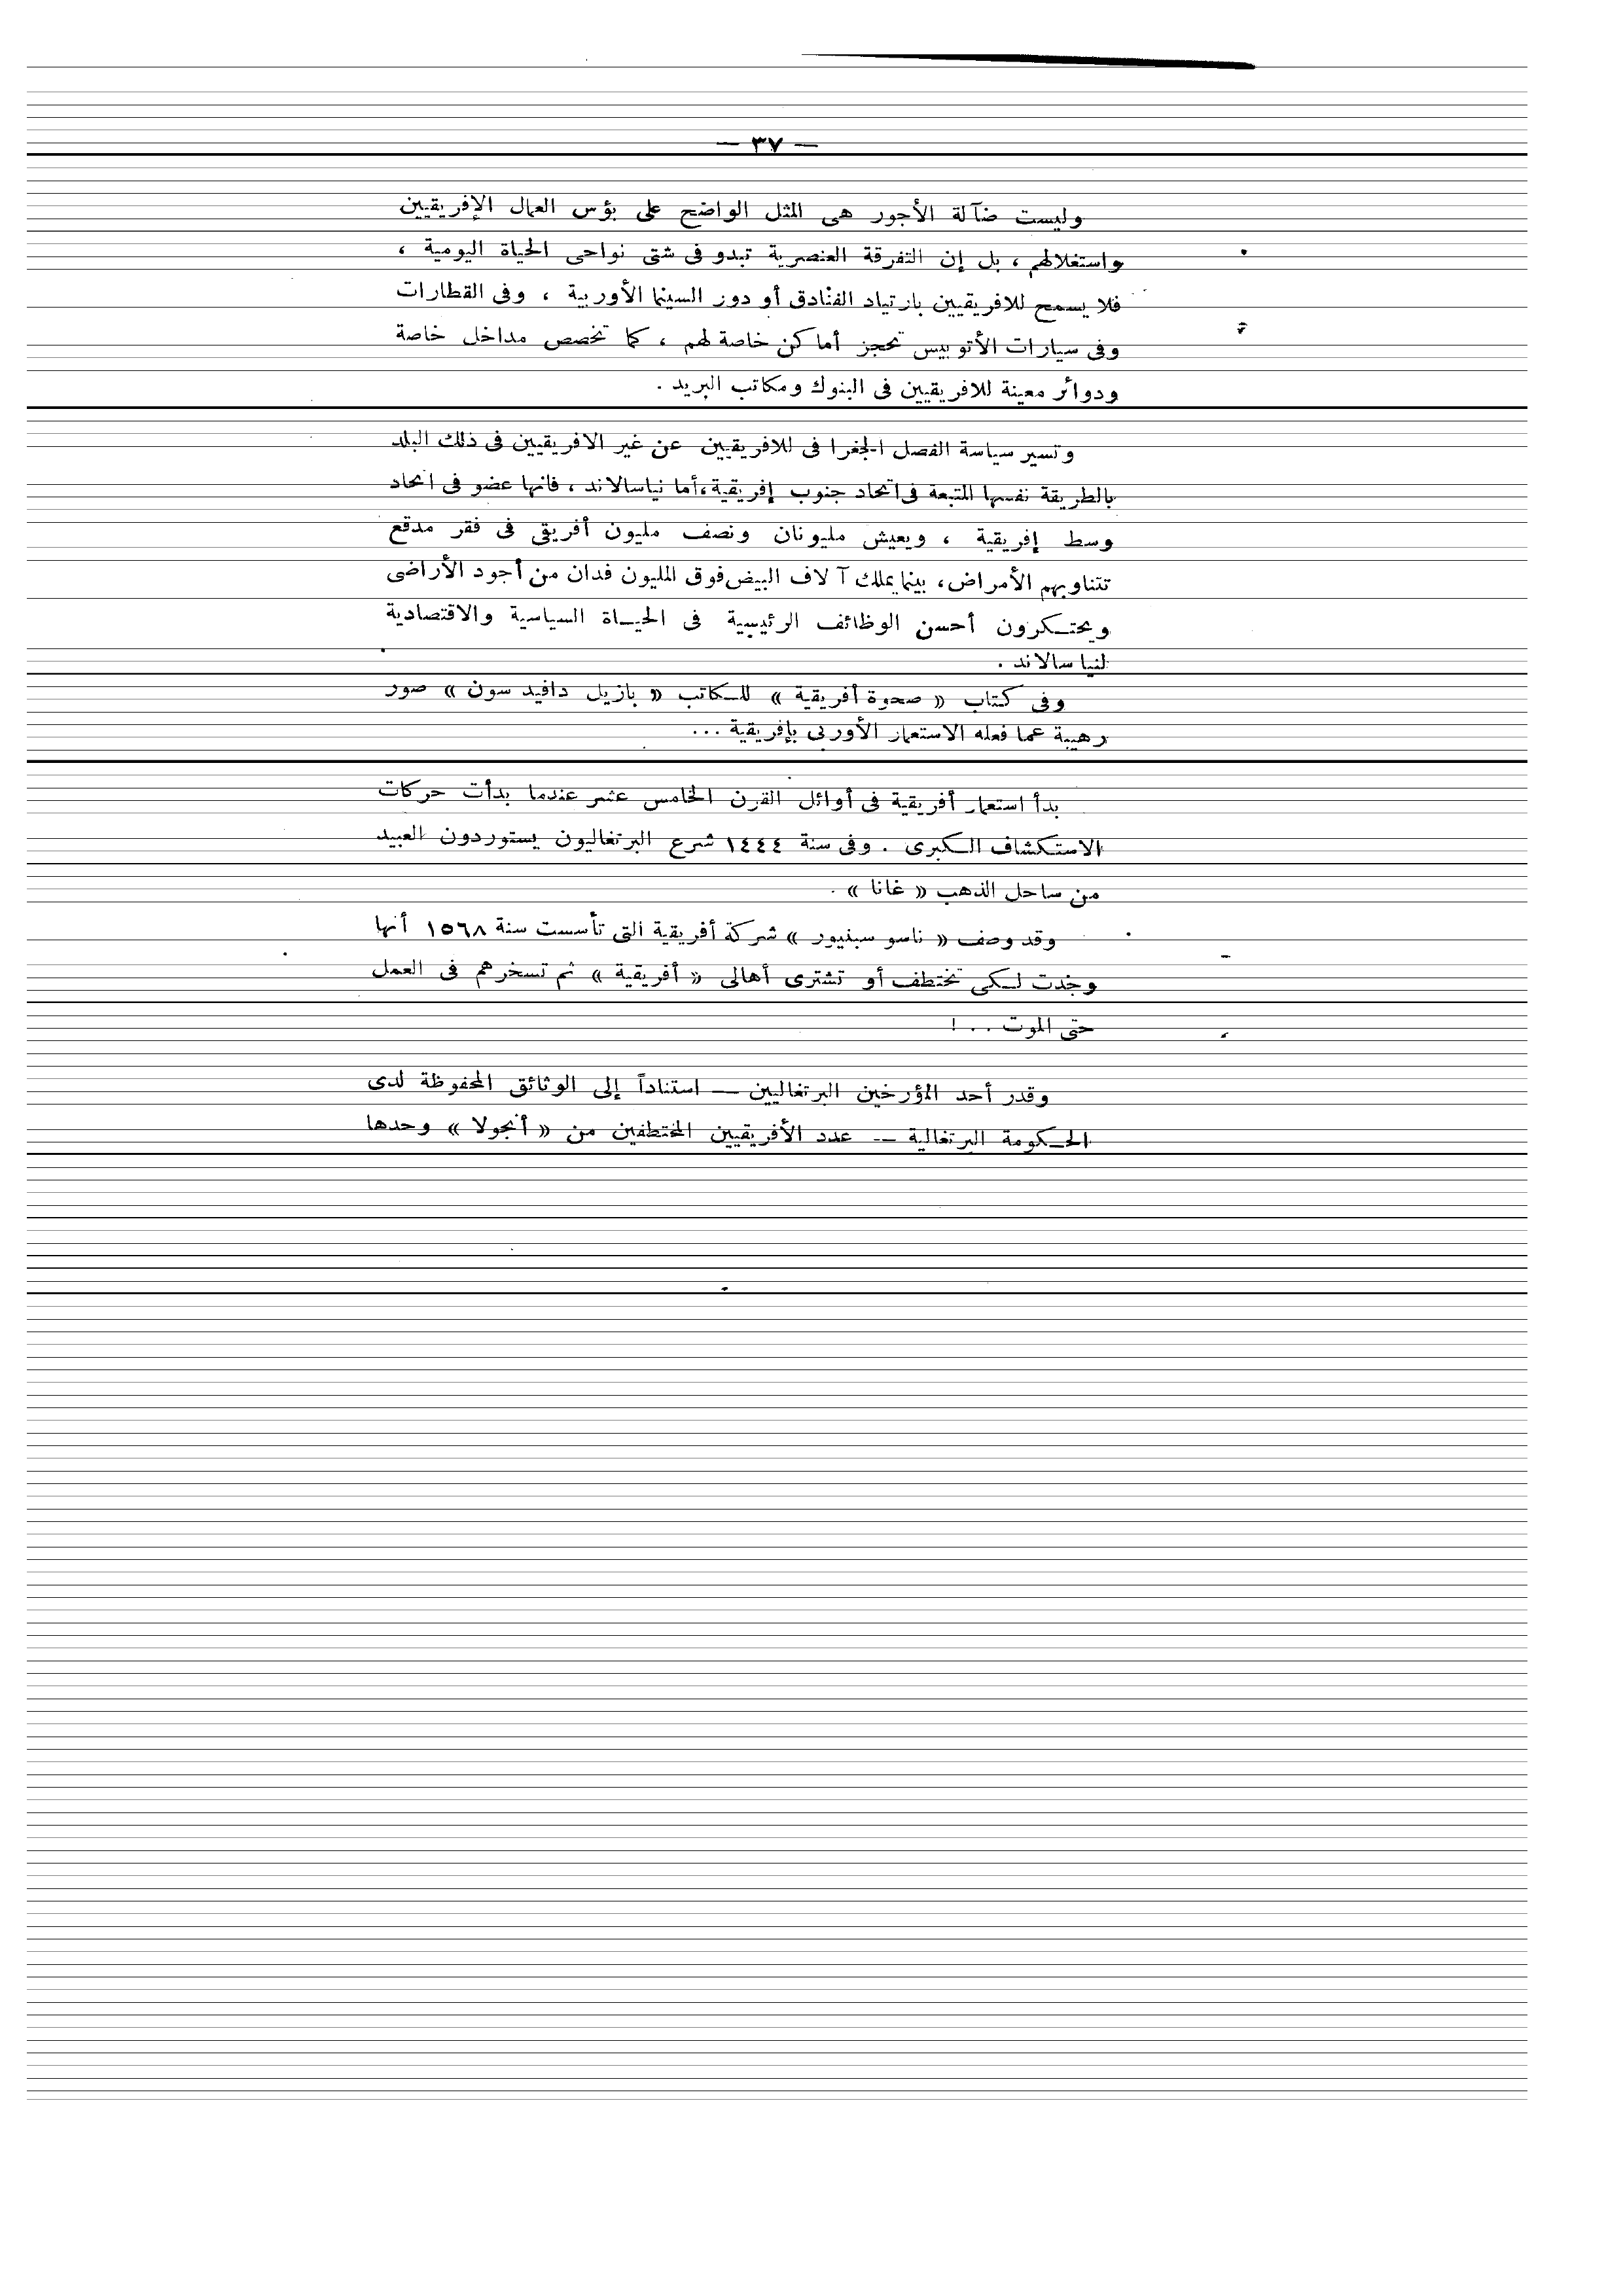 — ٣٧ —
وليست ضآلة الأجور هى المثل الواضح على بؤس العمال الإفريقيين
واستغلالهم ، بل إن التفرقة العنصرية تبدو فى شتى نواحى الحياة اليومية ،
فلا يسمح للافريقيين بارتياد الفنادق أو دور السينما الأوربية ، وفى القطارات
وفى سيارات الأتوبيس تحجز أماكن خاصة لهم ، كما تخصص مداخل خاصة
ودوائر معينة للافريقيين فى البنوك ومكاتب البريد .
وتسير سياسة الفصل الجغرافى للافريقيين عن غير الافريقيين فى ذلك البلد
بالطريقة نفسها المتبعة فى اتحاد جنوب إفريقية ، أما نياسالاند ، فانها عضو فى اتحاد
وسط إفريقية ، ويعيش مليونان ونصف مليون أفريقى فى فقر مدقع
تتناوبهم الأمراض ، بينما يملك آلاف البيض فوق المليون فدان من أجود الأراضى
ويحتـكرون أحسن الوظائف الرئيسية فى الحيـاة السياسية والاقتصادية
لنياسالاند .
وفى كتاب « صحوة أفريقية » للـكاتب « بازيل دافيد سون » صور
رهيبة عما فعله الاستعمار الأوربى بإفريقية ...
بدأ استعمار أفريقية فى أوائل القرن الخامس عشر عندما بدأت حركات
الاستـكشاف الـكبرى . وفى سنة ١٤٤٤ شرع البرتغاليون يستوردون العبيد
من ساحل الذهب « غانا » .
وقد وصف « ناسو سينيور » شركة أفريقية التى تأسست سنة ١٥٦٨ أنها
وجدت لـكى تختطف أو تشترى أهالى « أفريقية » ثم تسخرهم فى العمل
حتى الموت . . !
وقدر أحد المؤرخين البرتغاليين — استناداً إلى الوثائق المحفوظة لدى
الحـكومة البرتغالية — عدد الأفريقيين المختطفين من « أنجولا » وحدها